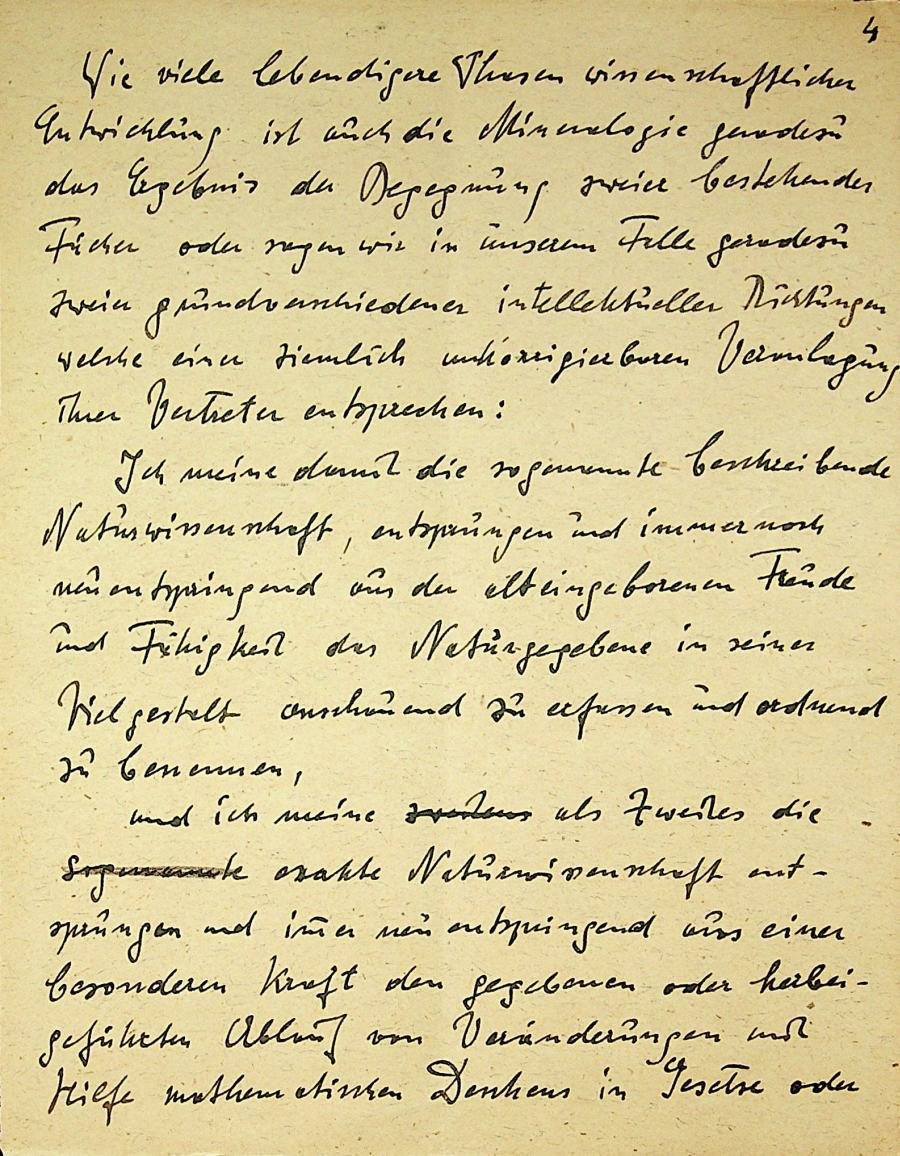 4
Wie viele lebendigere Phasen wissenschaftlicher
Entwicklung ist auch die Mineralogie geradezu
das Ergebnis der Begegnung zweier bestehender
Fächer oder sagen wir in unserem Falle geradezu
zweier grundverschiedener intellektueller Richtungen
welche einer ziemlich unkorrigierbaren Veranlagung
ihrer Vertreter entsprechen:
Ich meine damit die sogenannte beschreibende
Naturwissenschaft, entsprungen und immer noch
neu entspringend aus der alteingeborenen Freude
und Fähigkeit das Naturgegebene in seiner
Vielgestalt anschauend zu erfassen und ordnend
zu benennen,
und ich meine zweitens als Zweites die
sogenannte exakte Naturwissenschaft ent-
sprungen und im̄er neu entspringend aus einer
besonderen Kraft den gegebenen oder herbei-
geführten Ablauf von Veränderungen mit
Hilfe mathematischen Denkens in Gesetze oder